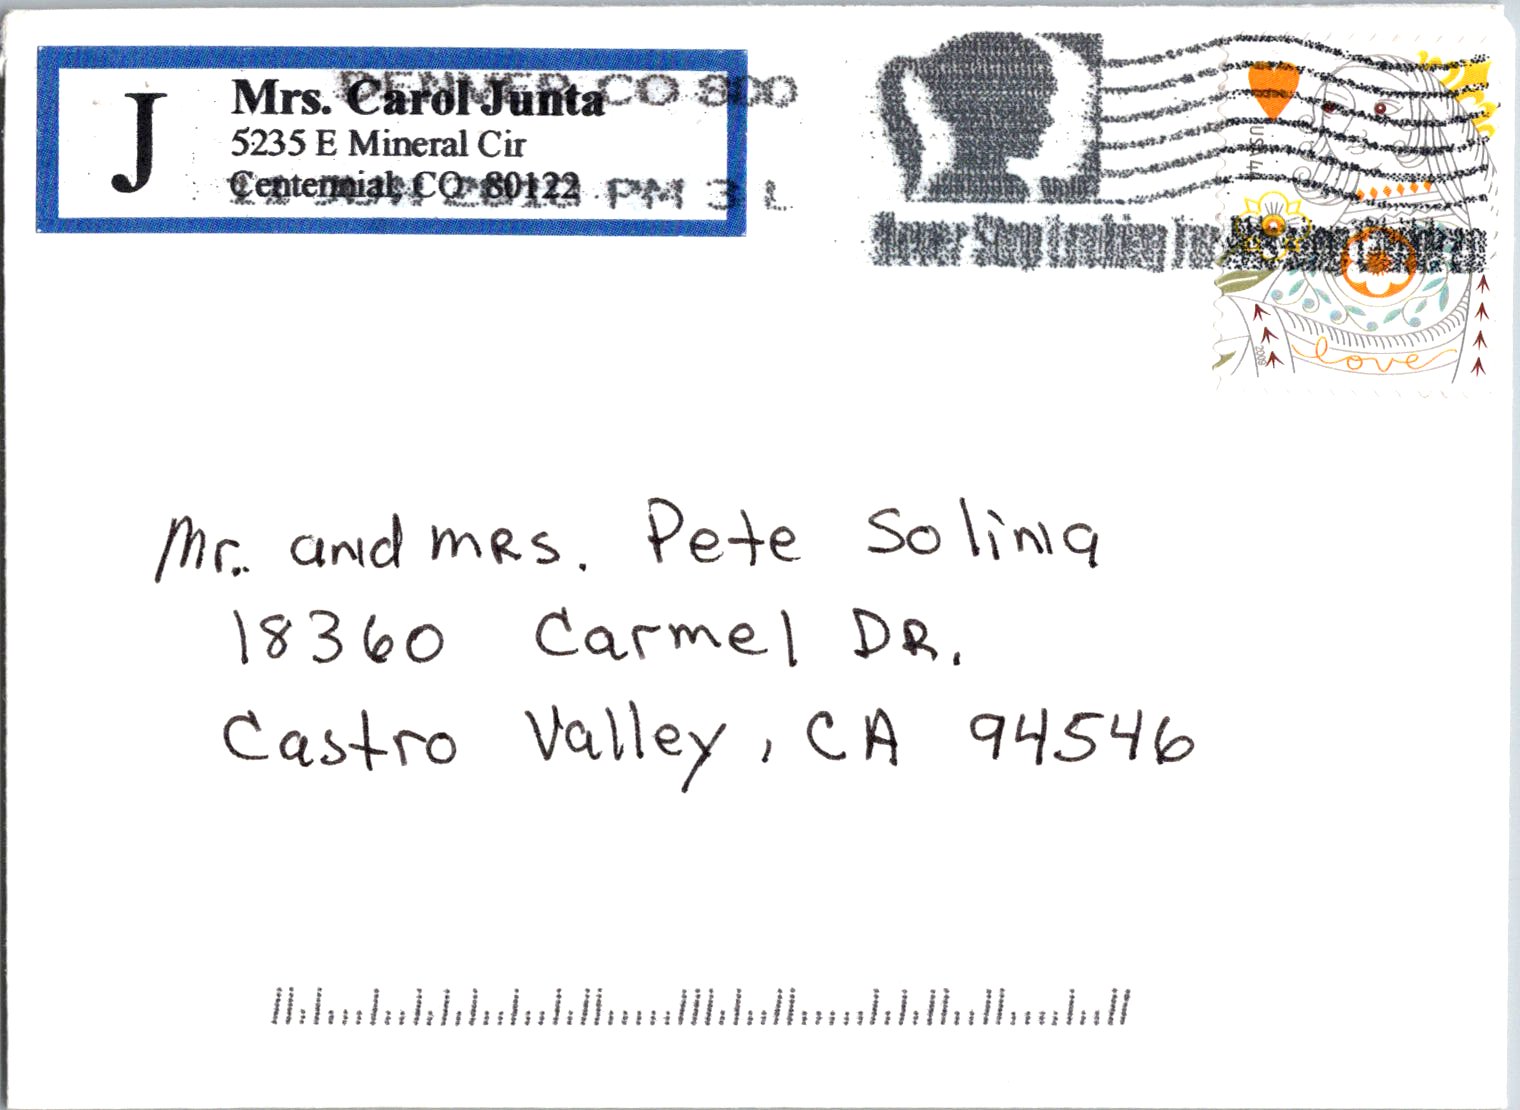 J
Mrs. Carol Junta
5235 E Mineral Cir
Centennial, CO 80122
DENVER CO 800
PM 3 L
USA 44
love
2009
Mr. and MRS. Pete Solina
18360 Carmel DR.
Castro Valley, CA 94546